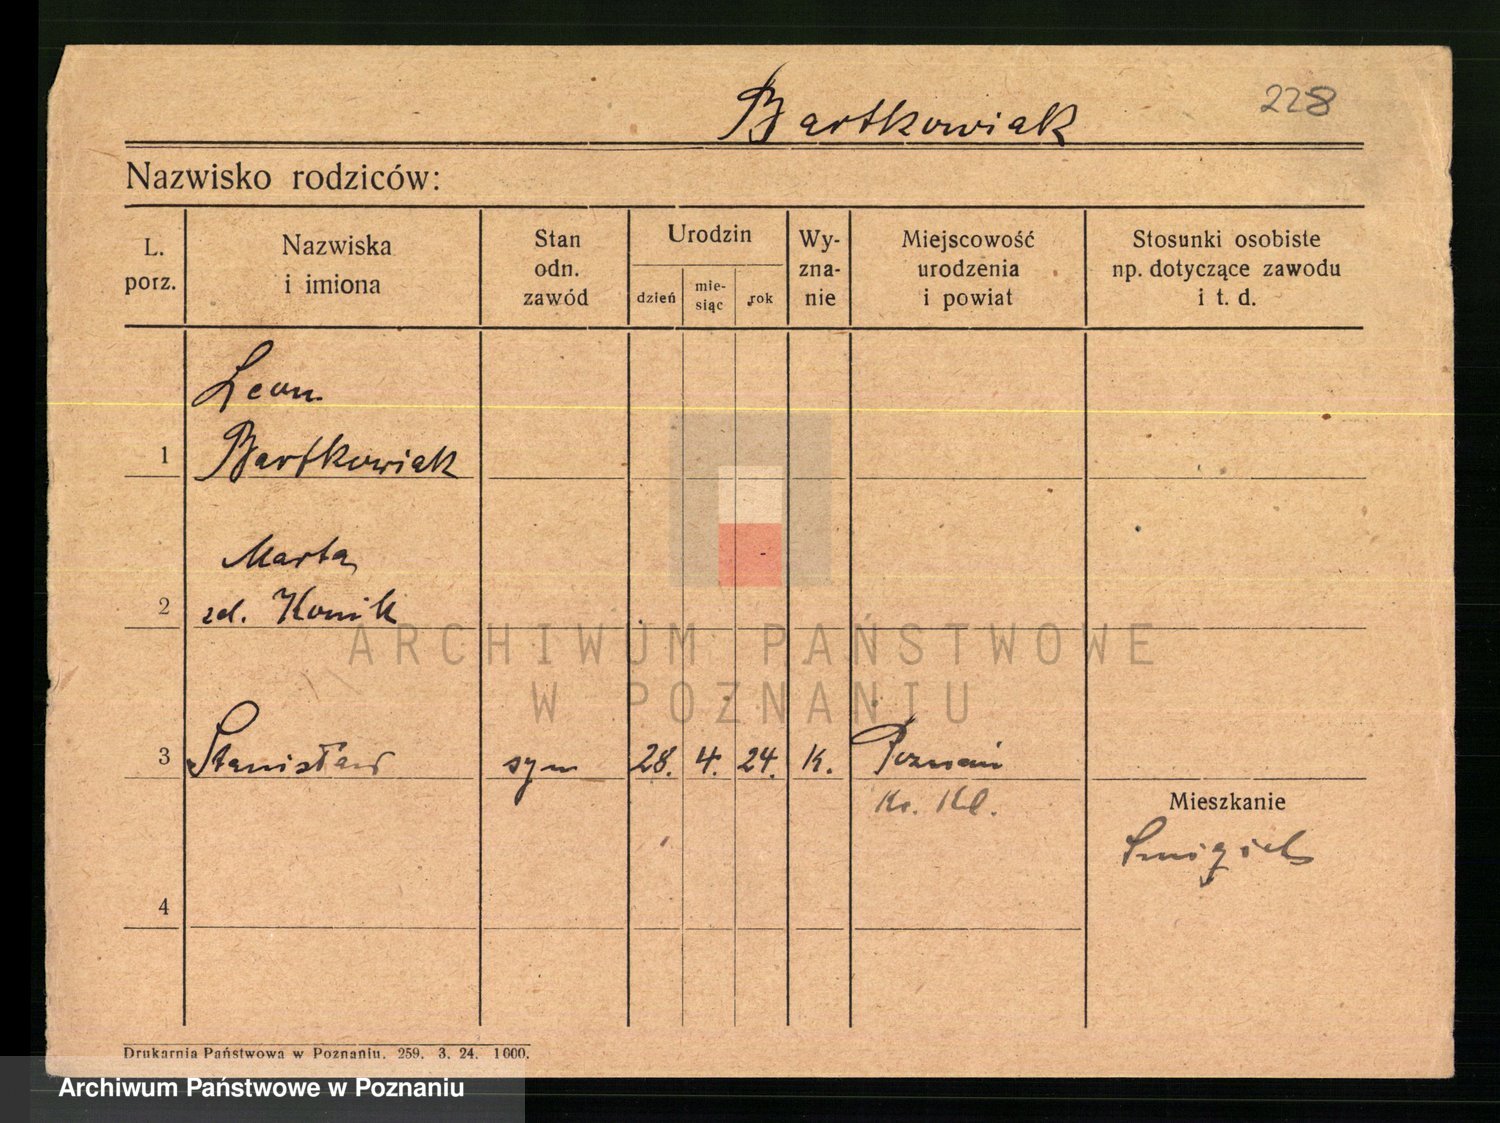 Bartkowiak
228
Nazwisko rodziców:
L. porz.
Nazwiska i imiona
Stan odn. zawód
Urodzin
dzień
mie-siąc
rok
Wy-zna-nie
Miejscowość urodzenia i powiat
Stosunki osobiste np. dotyczące zawodu i t. d.
Leon
1 Bartkowiak
Marta
2 zd. Konik
3 Stanisław syn 28. 4. 24. K. Poznań
Mieszkanie
Śmigiel
4
ARCHIWUM PAŃSTWOWE
W POZNANIU
Drukarnia Państwowa w Poznaniu. 259. 3. 24. 1000.
Archiwum Państwowe w Poznaniu